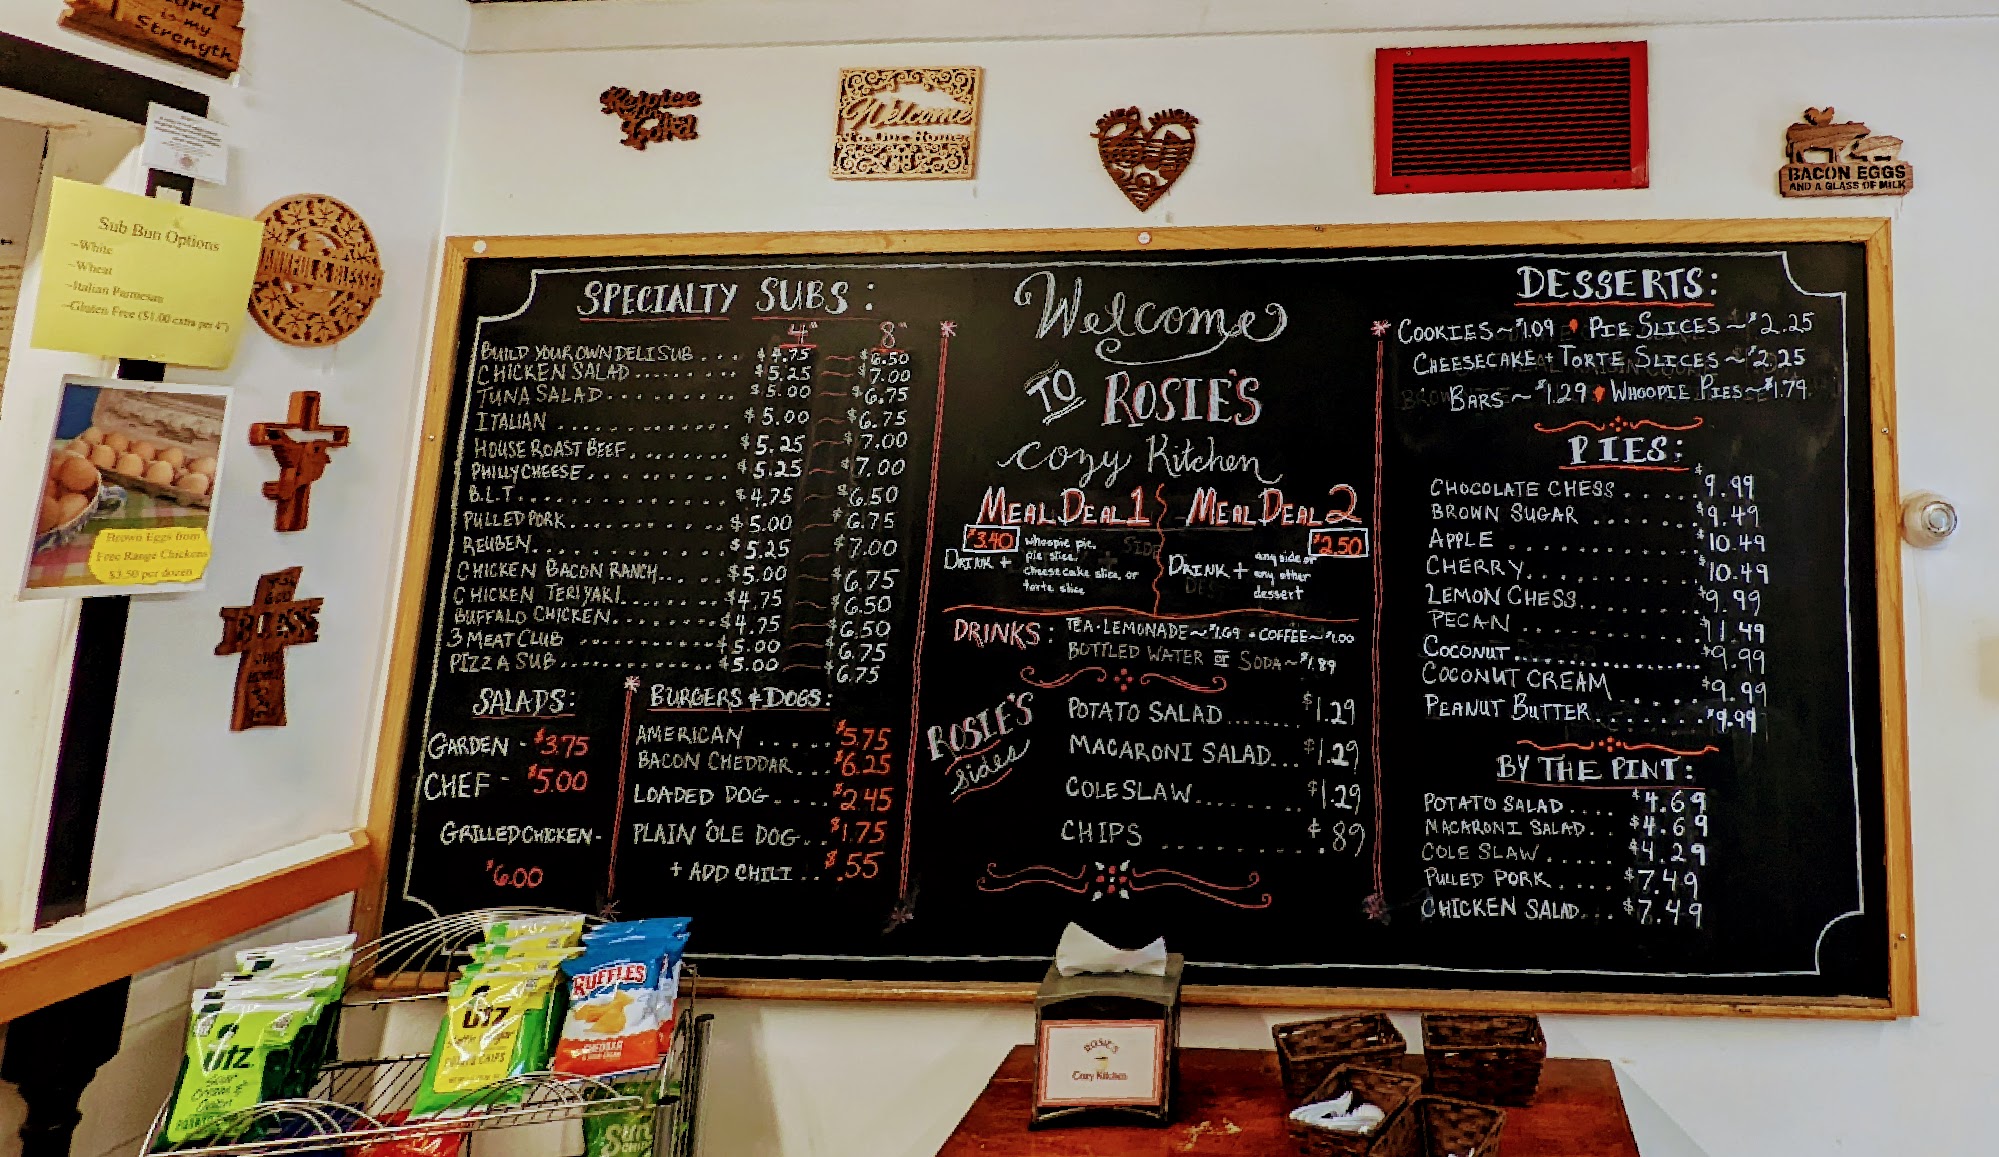 Lord
is my
Strength
Rejoice
in the
Lord
Welcome
To Our Home
BACON EGGS
AND A GLASS OF MILK
Sub Bun Options
~White
~Wheat
~Italian Parmesan
~Gluten Free ($1.00 extra per 4")
& BLESSED
Brown Eggs from
Free Range Chickens
$3.50 per dozen
SPECIALTY SUBS:
4" 8"
BUILD YOUR OWN DELI SUB... $4.75 ~ $6.50
CHICKEN SALAD........ $5.25 ~ $7.00
TUNA SALAD......... $5.00 ~ $6.75
ITALIAN ............. $5.00 ~ $6.75
HOUSE ROAST BEEF....... $5.25 ~ $7.00
PHILLY CHEESE.......... $5.25 ~ $7.00
B.L.T............... $4.75 ~ $6.50
PULLED PORK........... $5.00 ~ $6.75
REUBEN.............. $5.25 ~ $7.00
CHICKEN BACON RANCH... $5.00 ~ $6.75
CHICKEN TERIYAKI....... $4.75 ~ $6.50
BUFFALO CHICKEN........ $4.75 ~ $6.50
3 MEAT CLUB ........... $5.00 ~ $6.75
PIZZA SUB............. $5.00 ~ $6.75
SALADS:
GARDEN - $3.75
CHEF - $5.00
GRILLED CHICKEN -
$6.00
BURGERS & DOGS:
AMERICAN ..... $5.75
BACON CHEDDAR... $6.25
LOADED DOG.... $2.45
PLAIN 'OLE DOG.. $1.75
+ ADD CHILI .. $.55
Welcome
TO ROSIE'S
cozy Kitchen
MEAL DEAL 1
$3.40
DRINK +
whoopie pie,
pie slice,
cheesecake slice, or
torte slice
MEAL DEAL 2
$2.50
DRINK +
any side or
any other
dessert
DRINKS: TEA · LEMONADE ~ $1.69 · COFFEE ~ $1.00
BOTTLED WATER or SODA ~ $1.89
ROSIE'S
sides
POTATO SALAD....... $1.29
MACARONI SALAD... $1.29
COLE SLAW........ $1.29
CHIPS .......... $.89
DESSERTS:
COOKIES ~ $1.09 PIE SLICES ~ $2.25
CHEESECAKE + TORTE SLICES ~ $2.25
BARS ~ $1.29 WHOOPIE PIES ~ $1.79
PIES:
CHOCOLATE CHESS ..... $9.99
BROWN SUGAR ....... $9.49
APPLE ............ $10.49
CHERRY........... $10.49
LEMON CHESS........ $9.99
PECAN ............ $11.49
COCONUT............... $9.99
COCONUT CREAM ..... $9.99
PEANUT BUTTER........ $9.99
BY THE PINT:
POTATO SALAD.... $4.69
MACARONI SALAD.. $4.69
COLE SLAW..... $4.29
PULLED PORK.... $7.49
CHICKEN SALAD... $7.49
utz
Sour
Cream &
Onion
utz
POTATO CHIPS
RUFFLES
CHEDDAR
& SOUR CREAM
Sun
CHIPS
ROSIE'S
Cozy Kitchen